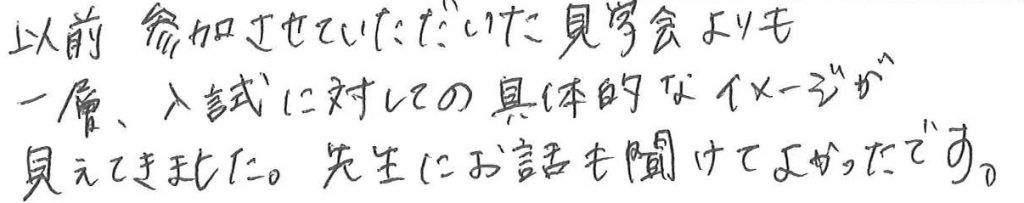 以前 参加させていただいた見学会よりも
一層、入試に対しての具体的なイメージが
見えてきました。先生にお話も聞けてよかったです。